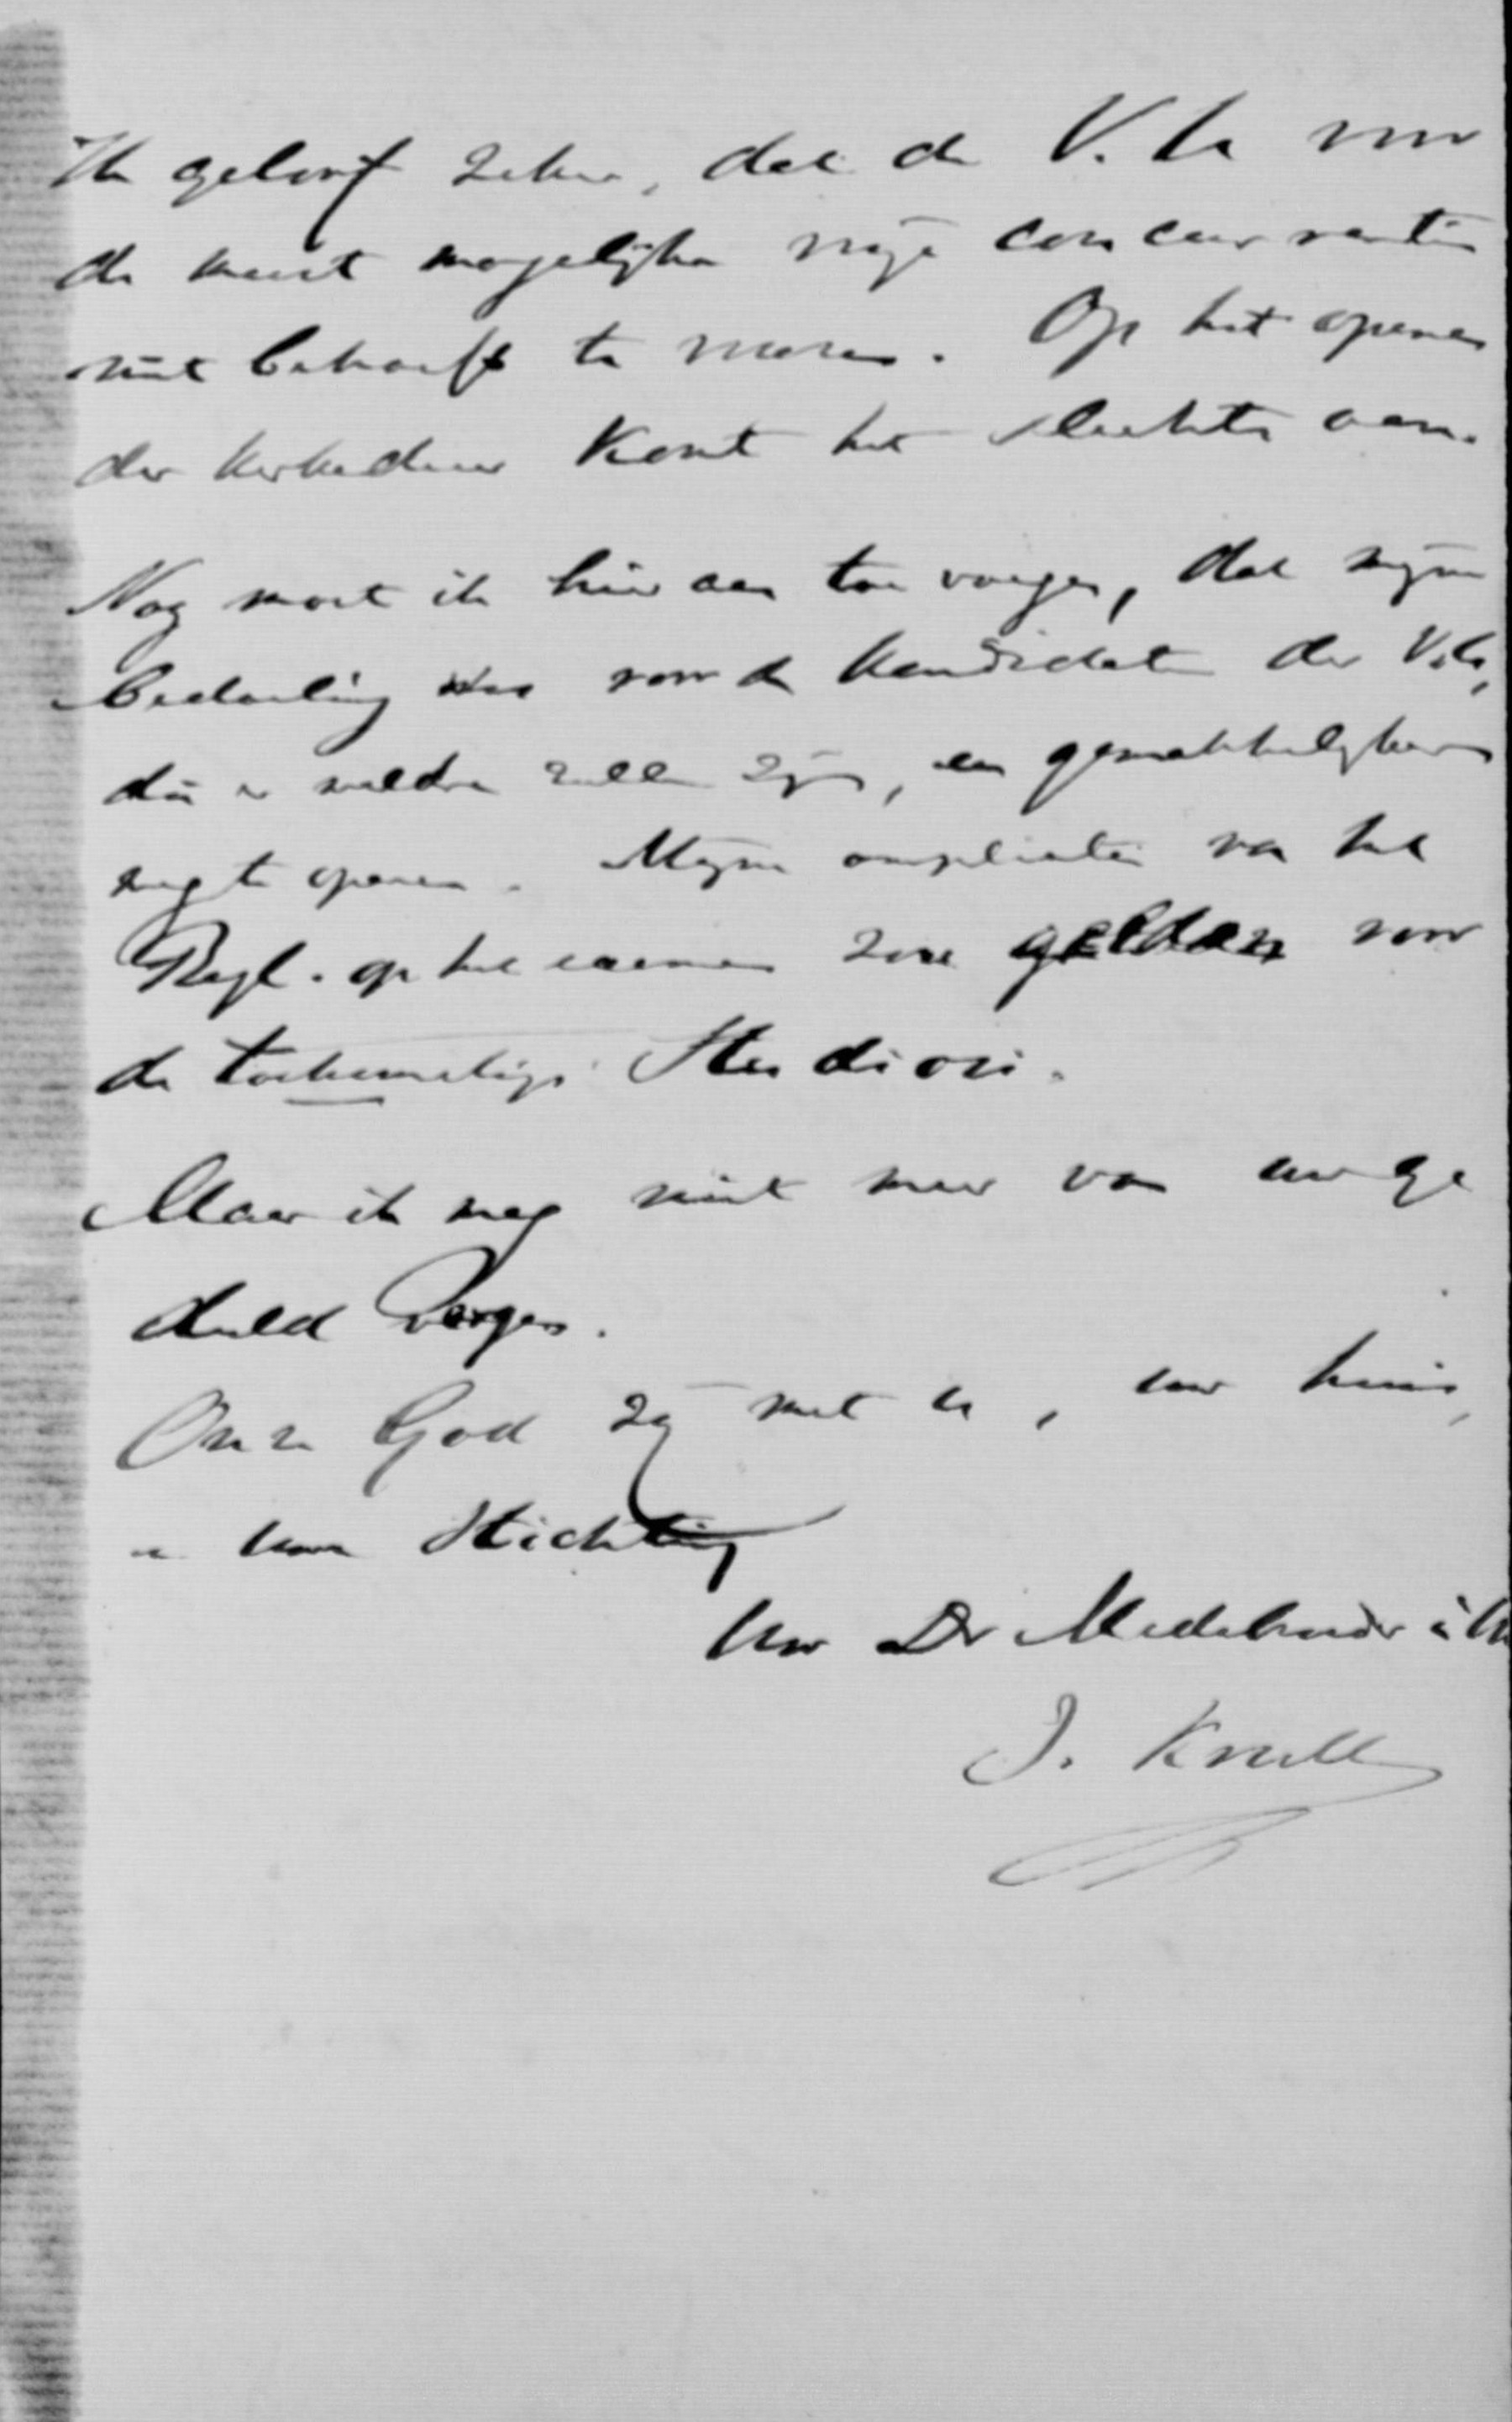 Ik geloof zeker, dat de V. U. voor
de meest mogelijke vrije concurrentie
niet behoeft te vreezen. Op het openen
der kerkedeur komt het slechts aan.
Nog moet ik hier aan toe voegen, dat mijne
bedoeling was voor de kandidaten der V.U.,
die er weldra zullen zijn, een gemakkelijken
weg te openen. Mijne ampliatie van het
Regl. op het examen zou gelden voor
de toekomstige Studiosi.
Maar ik mag niet meer van uw ge
duld vergen.
Onze God zij met u, uw huis,
en uwe Stichting
Uw Dr Medebroeder in
J. Krull